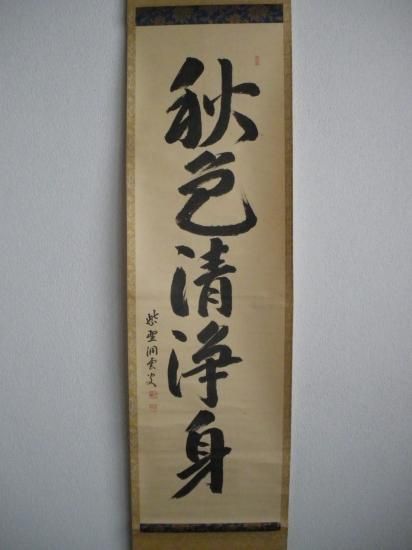 秋色清浄身
紫野洞雲叟